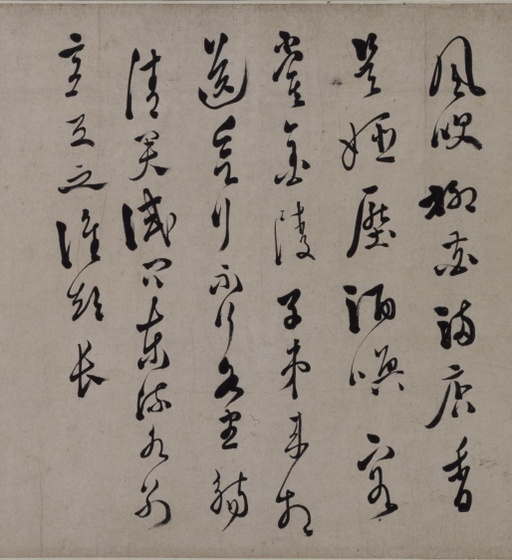 風吹柳花滿店香
吳姬壓酒喚客
嘗金陵子弟來相
送欲行不行各盡觴
請君試問東流水別
意與之誰短長